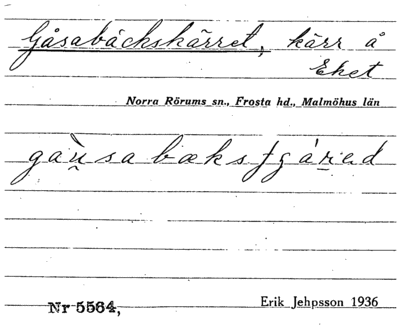 Gåsabäckskärret, kärr å
Eket
Norra Rörums sn., Frosta hd., Malmöhus län
Nr 5564,
Erik Jehpsson 1936